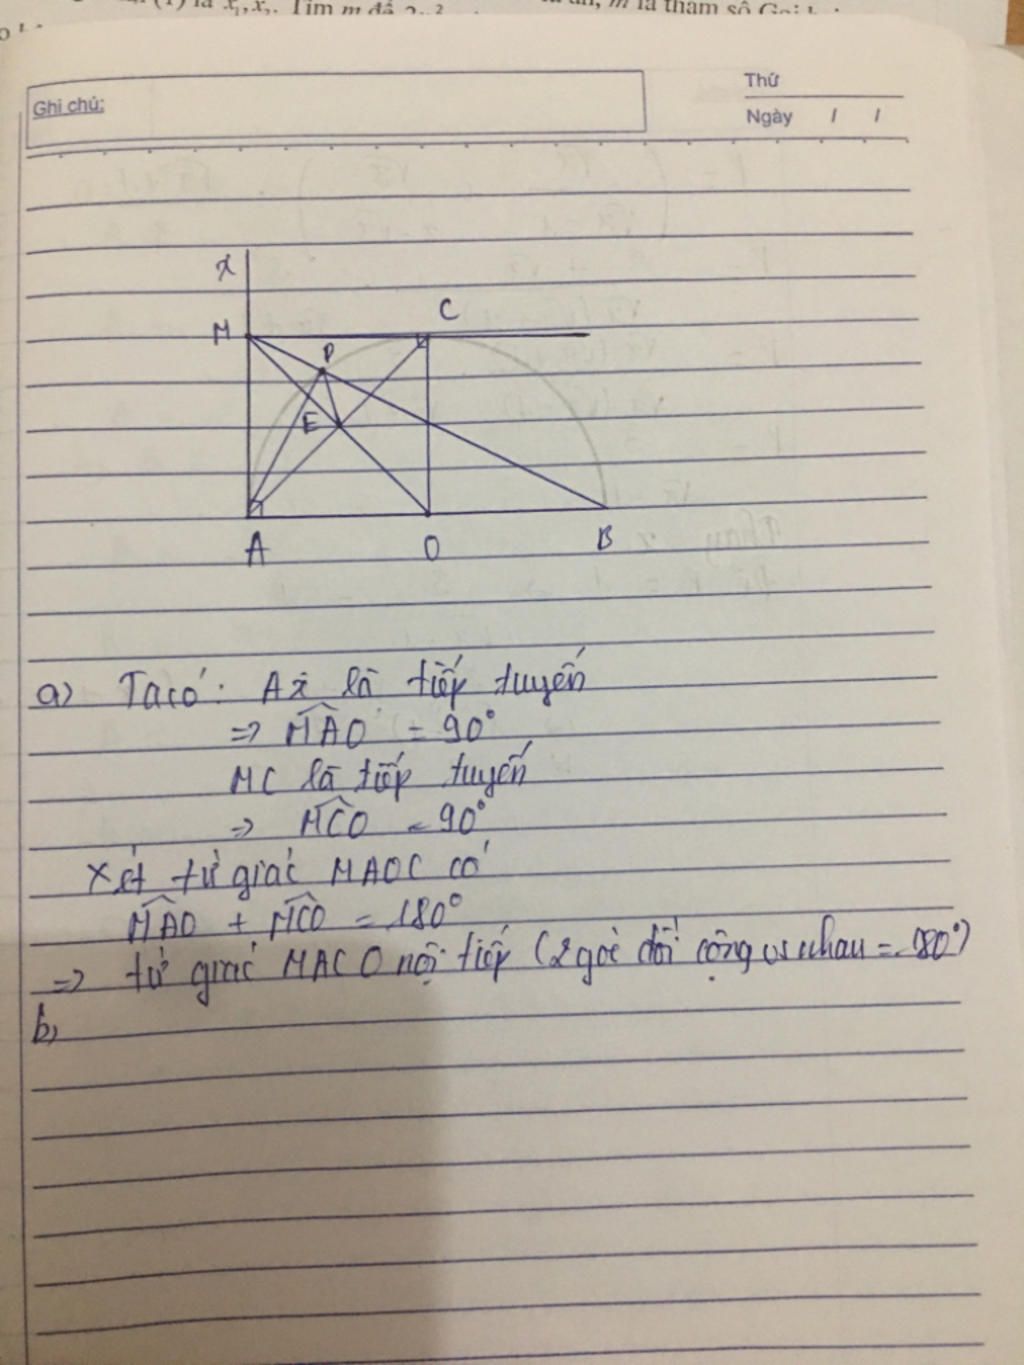 (1) là x₁, x₂. Tìm m để
m là tham số Gọi
Ghi chú:
Thứ
Ngày / /
x
M
C
P
E
A
O
B
a) Ta có: Ax là tiếp tuyến
=> MÂO = 90°
MC là tiếp tuyến
=> MĈO = 90°
Xét tứ giác MAOC có
MÂO + MĈO = 180°
=> tứ giác MACO nội tiếp (2 góc đối cộng vs nhau = 180°)
b,